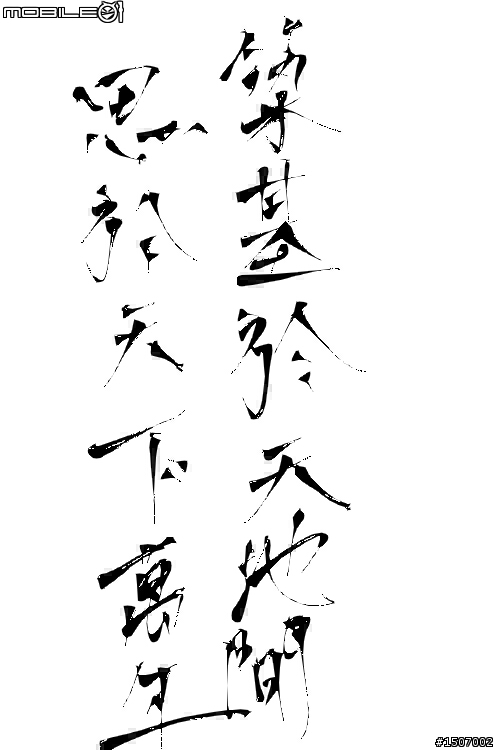 MOBILE01
築基於天地間
思於天下萬年
#1507002